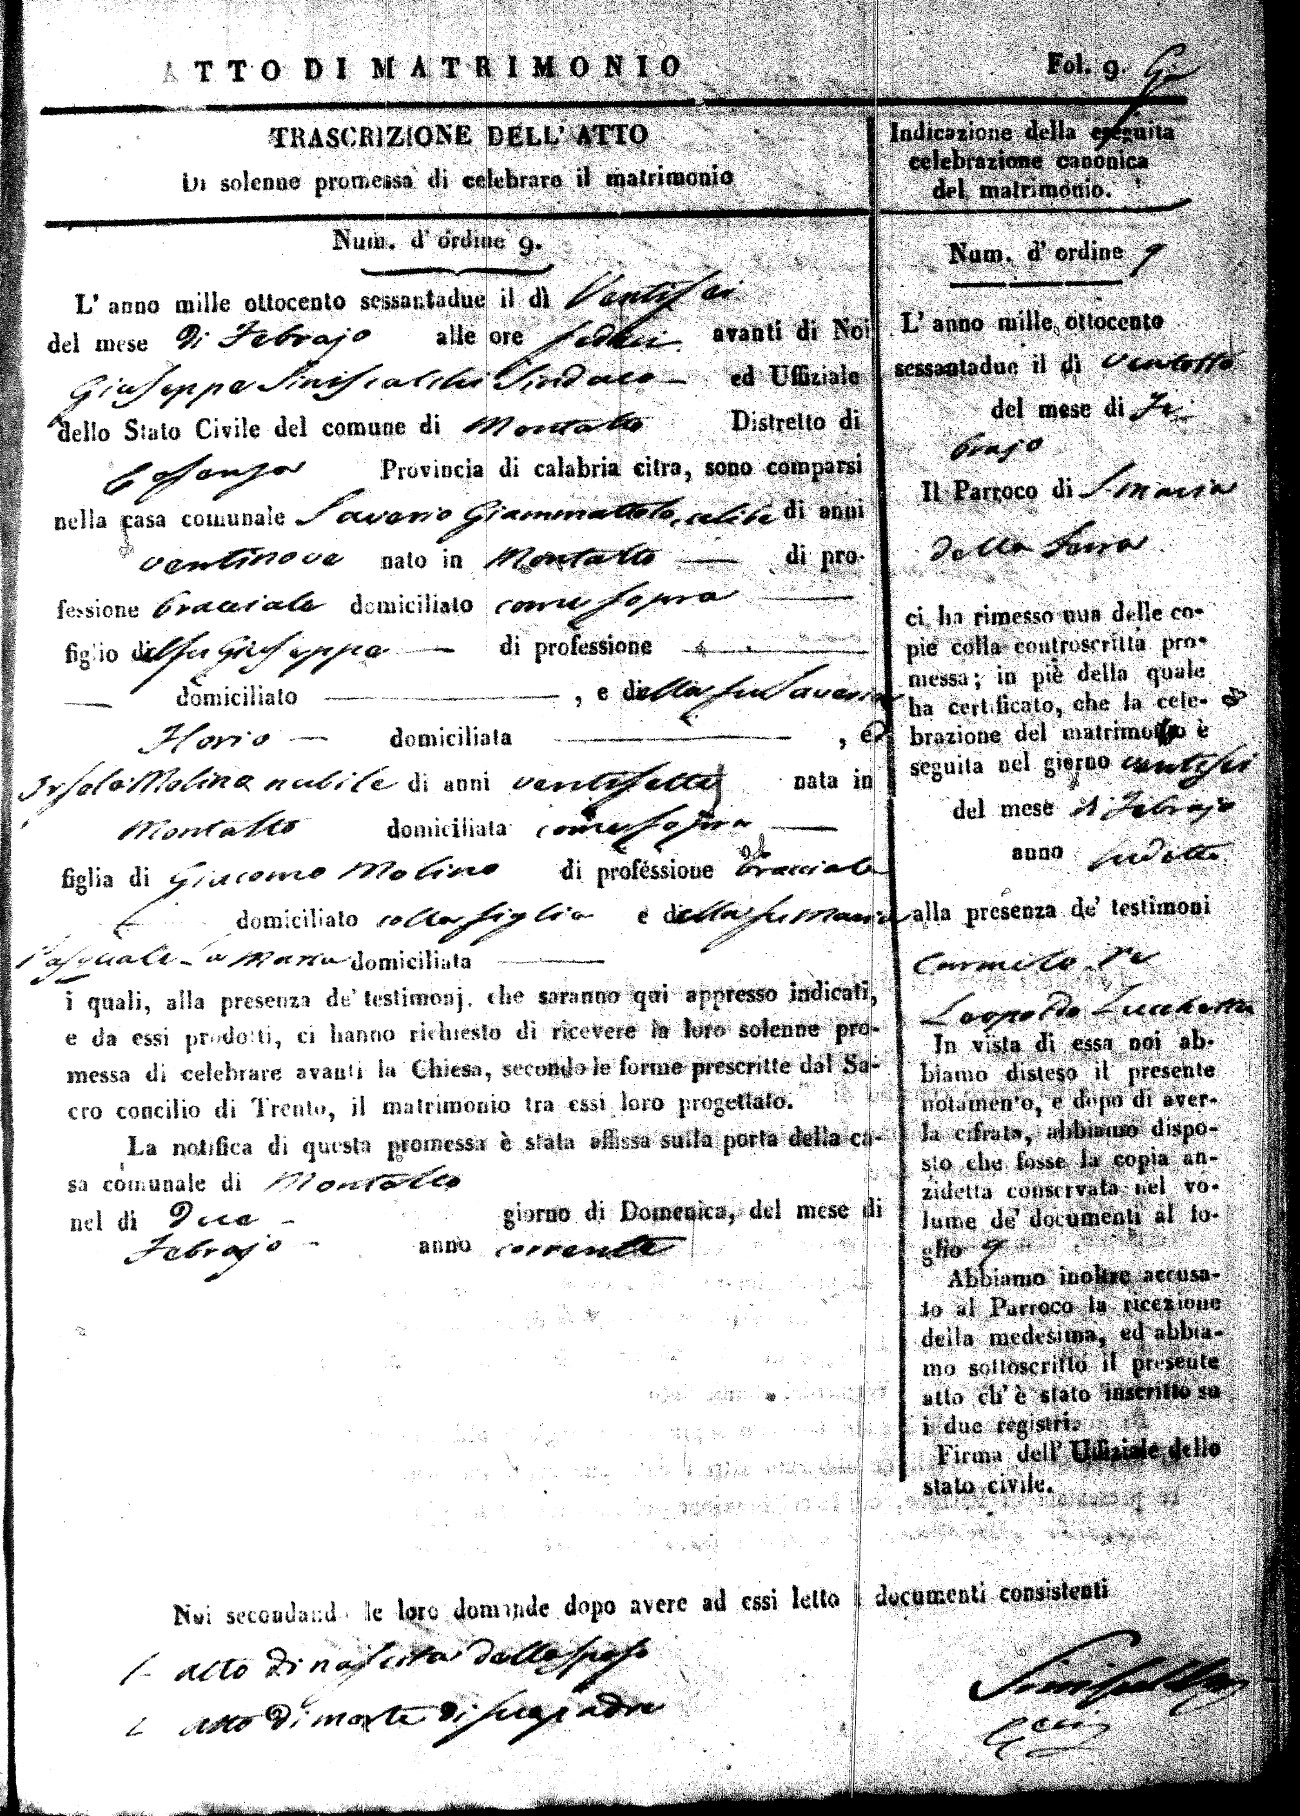 ATTO DI MATRIMONIO
Fol. 9.
TRASCRIZIONE DELL' ATTO
Di solenne promessa di celebrare il matrimonio
Num. d' ordine 9.
L' anno mille ottocento sessantadue il dì Ventisei
del mese di Febrajo alle ore sedici avanti di Noi
Giuseppe Siniscalchi Sindaco ed Uffiziale
dello Stato Civile del comune di Montalto Distretto di
Cosenza Provincia di calabria citra, sono comparsi
nella casa comunale Saverio Giammattolo, celibe di anni
ventinove nato in Montalto — di pro-
fessione bracciale domiciliato come sopra —
figlio del fu Giuseppe — di professione —
— domiciliato — , e della fu Saveria
Florio — domiciliata — , ed
Isola Molina nubile di anni ventisette nata in
Montalto domiciliata come sopra —
figlia di Giacomo Molino di professione bracciale
domiciliato colla figlia e della fu Maria
Pasquale La domiciliata —
i quali, alla presenza de' testimonj. che saranno qui appresso indicati,
e da essi prodotti, ci hanno richiesto di ricevere la loro solenne pro-
messa di celebrare avanti la Chiesa, secondo le forme prescritte dal Sa-
cro concilio di Trento, il matrimonio tra essi loro progettato.
La notifica di questa promessa è stata affissa sulla porta della ca-
sa comunale di Montalto
nel di Due — giorno di Domenica, del mese di
Febrajo — anno corrente
Indicazione della eseguita
celebrazione canonica
del matrimonio.
Num. d' ordine 9
L' anno mille ottocento
sessantadue il dì ventotto
del mese di Fe-
brajo
Il Parroco di S. Maria
della Serra
ci ha rimesso una delle co-
pie colla controscritta pro-
messa; in piè della quale
ha certificato, che la cele-
brazione del matrimonio è
seguita nel giorno ventisei
del mese di Febrajo
anno sudetto
alla presenza de' testimoni
Carmelo Re
Leopoldo Zucchetta
In vista di essa noi ab-
biamo disteso il presente
notamento, e dopo di aver-
la cifrata, abbiamo dispo-
sto che fosse la copia an-
zidetta conservata nel vo-
lume de' documenti al fo-
glio 9
Abbiamo inoltre accusa-
to al Parroco la ricezione
della medesima, ed abbia-
mo sottoscritto il presente
atto ch' è stato inscritto su
i due registri.
Firma dell' Uffiziale dello
stato civile.
Noi secondando le loro domande dopo avere ad essi letto i documenti consistenti
1- atto di nascita dello sposo
2 atto di morte di suo padre
Siniscalchi